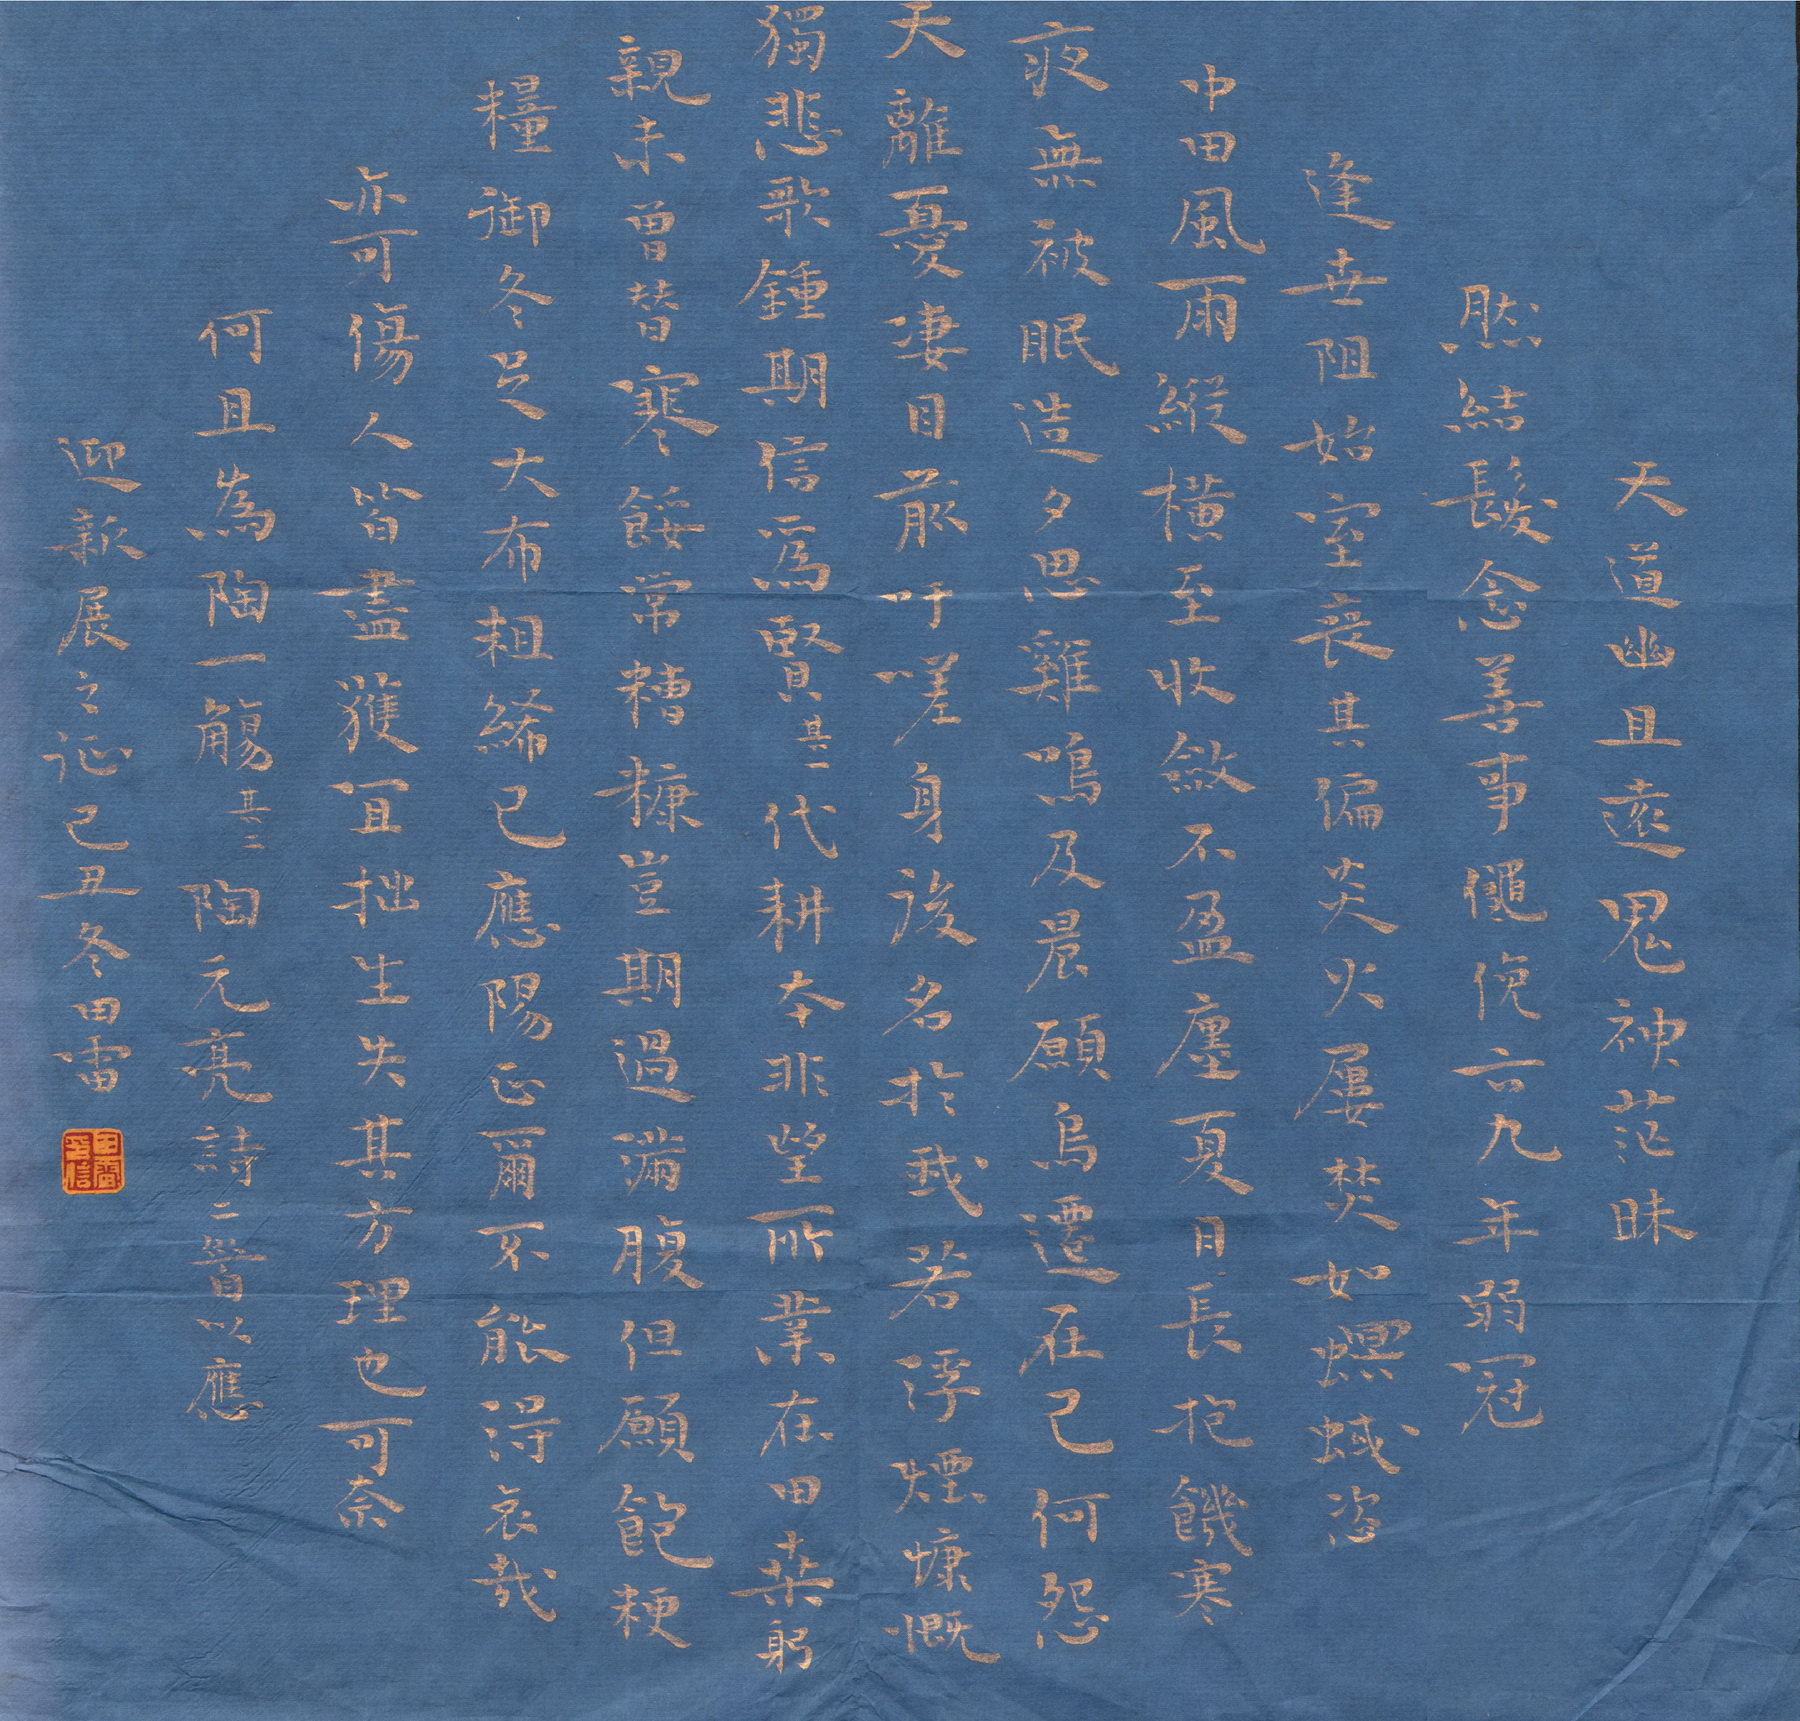 天道幽且遠鬼神茫昧
然結髮念善事僶俛六九年弱冠
逢世阻始室喪其偏炎火屢焚如螟蜮恣
中田風雨縱橫至收斂不盈廛夏日長抱饑寒
夜無被眠造夕思雞鳴及晨願烏遷在己何怨
天離憂凄目前吁嗟身後名於我若浮煙慷慨
獨悲歌鍾期信為賢其一代耕本非望所業在田桑躬
親未曾替寒餒常糟糠豈期過滿腹但願飽粳
糧御冬足大布粗絺已應陽正爾不能得哀哉
亦可傷人皆盡獲宜拙生失其方理也可奈
何且為陶一觴其二陶元亮詩二首以應
迎新展之征己丑冬田雷